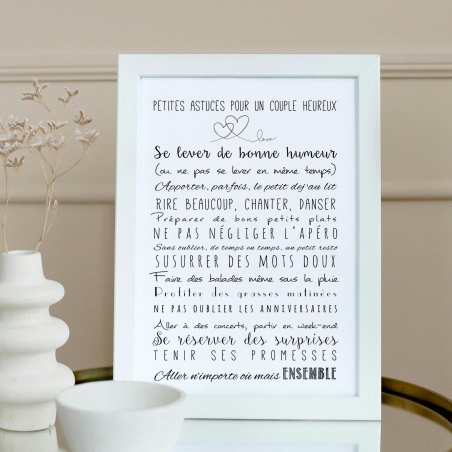 PETITES ASTUCES POUR UN COUPLE HEUREUX
love
Se lever de bonne humeur
(ou ne pas se lever en même temps)
Apporter, parfois, le petit dej'au lit
RIRE BEAUCOUP, CHANTER, DANSER
Préparer de bons petits plats
NE PAS NÉGLIGER L'APÉRO
Sans oublier, de temps en temps, un petit resto
SUSURRER DES MOTS DOUX
Faire des balades même sous la pluie
Profiter des grasses matinées
NE PAS OUBLIER LES ANNIVERSAIRES
Aller à des concerts, partir en week-end
Se réserver des surprises
TENIR SES PROMESSES
Aller n'importe où mais ENSEMBLE